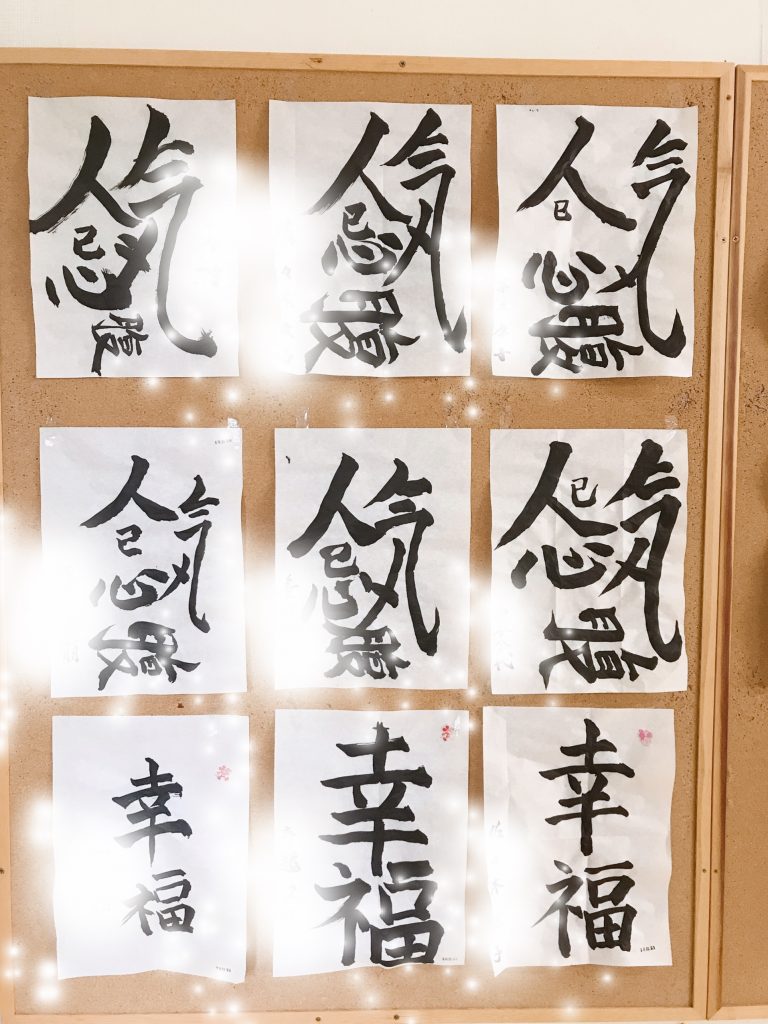 気
人己心腹
気
人己心腹
気
人己心腹
気
人己心腹
気
人己心腹
気
人己心腹
幸福
幸福
幸福